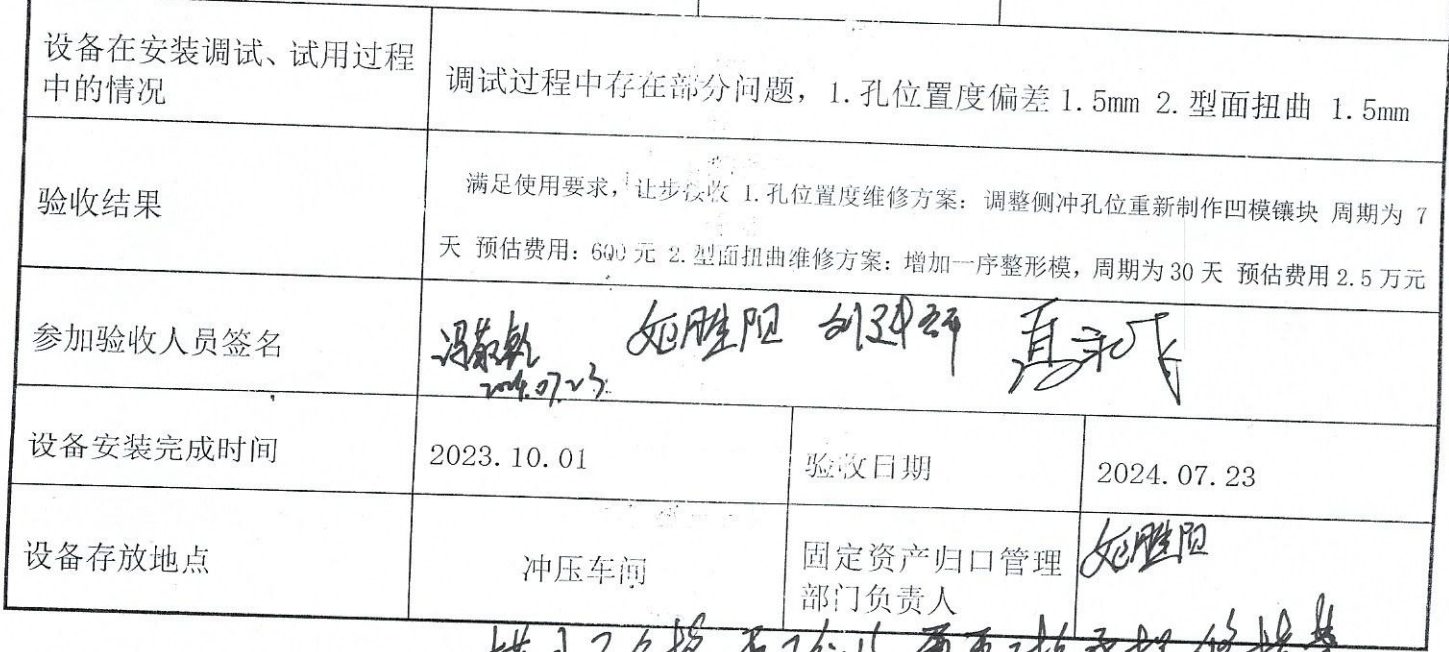 设备在安装调试、试用过程
中的情况
调试过程中存在部分问题，1.孔位置度偏差 1.5mm 2.型面扭曲 1.5mm
验收结果
满足使用要求，让步接收 1.孔位置度维修方案：调整侧冲孔位重新制作凹模镶块 周期为 7
天 预估费用：600 元 2.型面扭曲维修方案：增加一序整形模，周期为 30 天 预估费用 2.5 万元
参加验收人员签名
2024.07.23
设备安装完成时间
2023.10.01
验收日期
2024.07.23
设备存放地点
冲压车间
固定资产归口管理
部门负责人